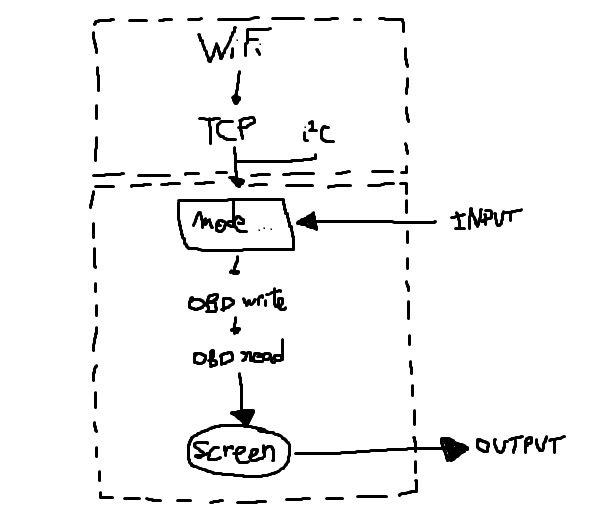 WiFi
TCP
i²C
Mode ...
INPUT
OBD write
OBD read
Screen
OUTPUT